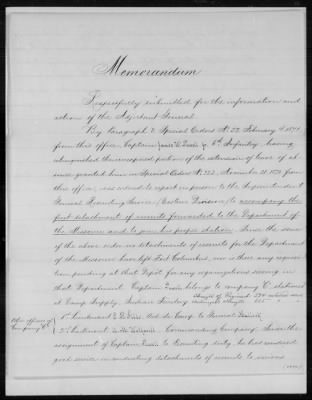 Memorandum
Respectfully submitted for the information and
action of the Adjutant General.
By paragraph 2 Special Orders No. 22 February 4, 1871
from this office, Captain 6th Infantry, having
relinquished the unexpired portion of the extension of leave of ab-
sence granted him in Special Orders No. 322, November 21, 1870 from
this office, was ordered to report in person to the Superintendent
General Recruiting Service (Eastern Division) to accompany the
first detachment of recruits forwarded to the Department of
the Missouri and to join his proper station. Since the issue
of the above order no detachments of recruits for the Department
of the Missouri have left Fort Columbus, nor is there any requisi-
tion pending at that Depot for any organizations serving in
that Department. Captain belongs to company C. stationed
at Camp Supply, Indian Territory
Other officers of
Company C
1st Lieutenant Aid-de-Camp to General
2d Lieutenant Commanding Company. Since the
assignment of Captain to Recruiting duty, he has rendered
good service in conducting detachments of recruits to various